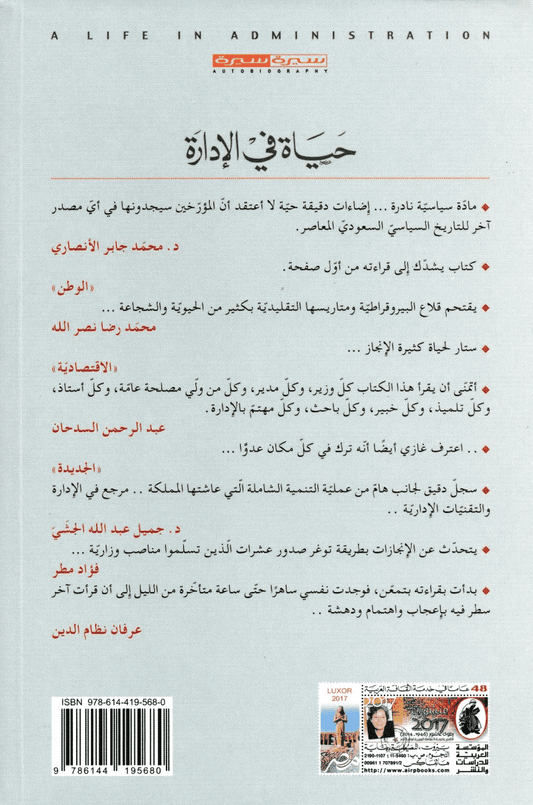 A LIFE IN ADMINISTRATION
سيرة سيرة
AUTOBIOGRAPHY
حَيَاة في الإدارَة
◆ مادّة سياسيّة نادرة ... إضاءات دقيقة حيّة لا أعتقد أنّ المؤرّخين سيجدونها في أيّ مصدر
آخر للتاريخ السياسيّ السعوديّ المعاصر.
د. محمّد جابر الأنصاري
◆ كتاب يشدّك إلى قراءته من أوّل صفحة.
«الوطن»
◆ يقتحم قلاع البيروقراطيّة ومتاريسها التقليديّة بكثير من الحيويّة والشجاعة ...
محمّد رضا نصر الله
◆ ستار لحياة كثيرة الإنجاز ...
«الاقتصاديّة»
◆ أتمّنى أن يقرأ هذا الكتاب كلّ وزير، وكلّ مدير، وكلّ من ولي مصلحة عامّة، وكلّ أستاذ،
وكلّ تلميذ، وكلّ خبير، وكلّ باحث، وكلّ مهتمّ بالإدارة.
عبد الرحمن السدحان
◆ .. اعترف غازي أيضًا أنّه ترك في كلّ مكان عدوًّا ...
«الجديدة»
◆ سجلّ دقيق لجانب هامّ من عمليّة التنمية الشاملة الّتي عاشتها المملكة .. مرجع في الإدارة
والتقنيّات الإداريّة ..
د. جميل عبد الله الجشّيّ
◆ يتحدّث عن الإنجازات بطريقة توغر صدور عشرات الّذين تسلّموا مناصب وزاريّة ...
فؤاد مطر
◆ بدأت بقراءته بتمعّن، فوجدت نفسي ساهرًا حتّى ساعة متأخّرة من الليل إلى أن قرأت آخر
سطر فيه بإعجاب واهتمام ودهشة ..
عرفان نظام الدين
ISBN 978-614-419-568-0
9 786144 195680
LUXOR
2017
مصر
48 عامًا في خدمة الثقافة العربية
2017
المؤسسة
العربية
للدراسات
والنشر
http://www.airpbooks.com